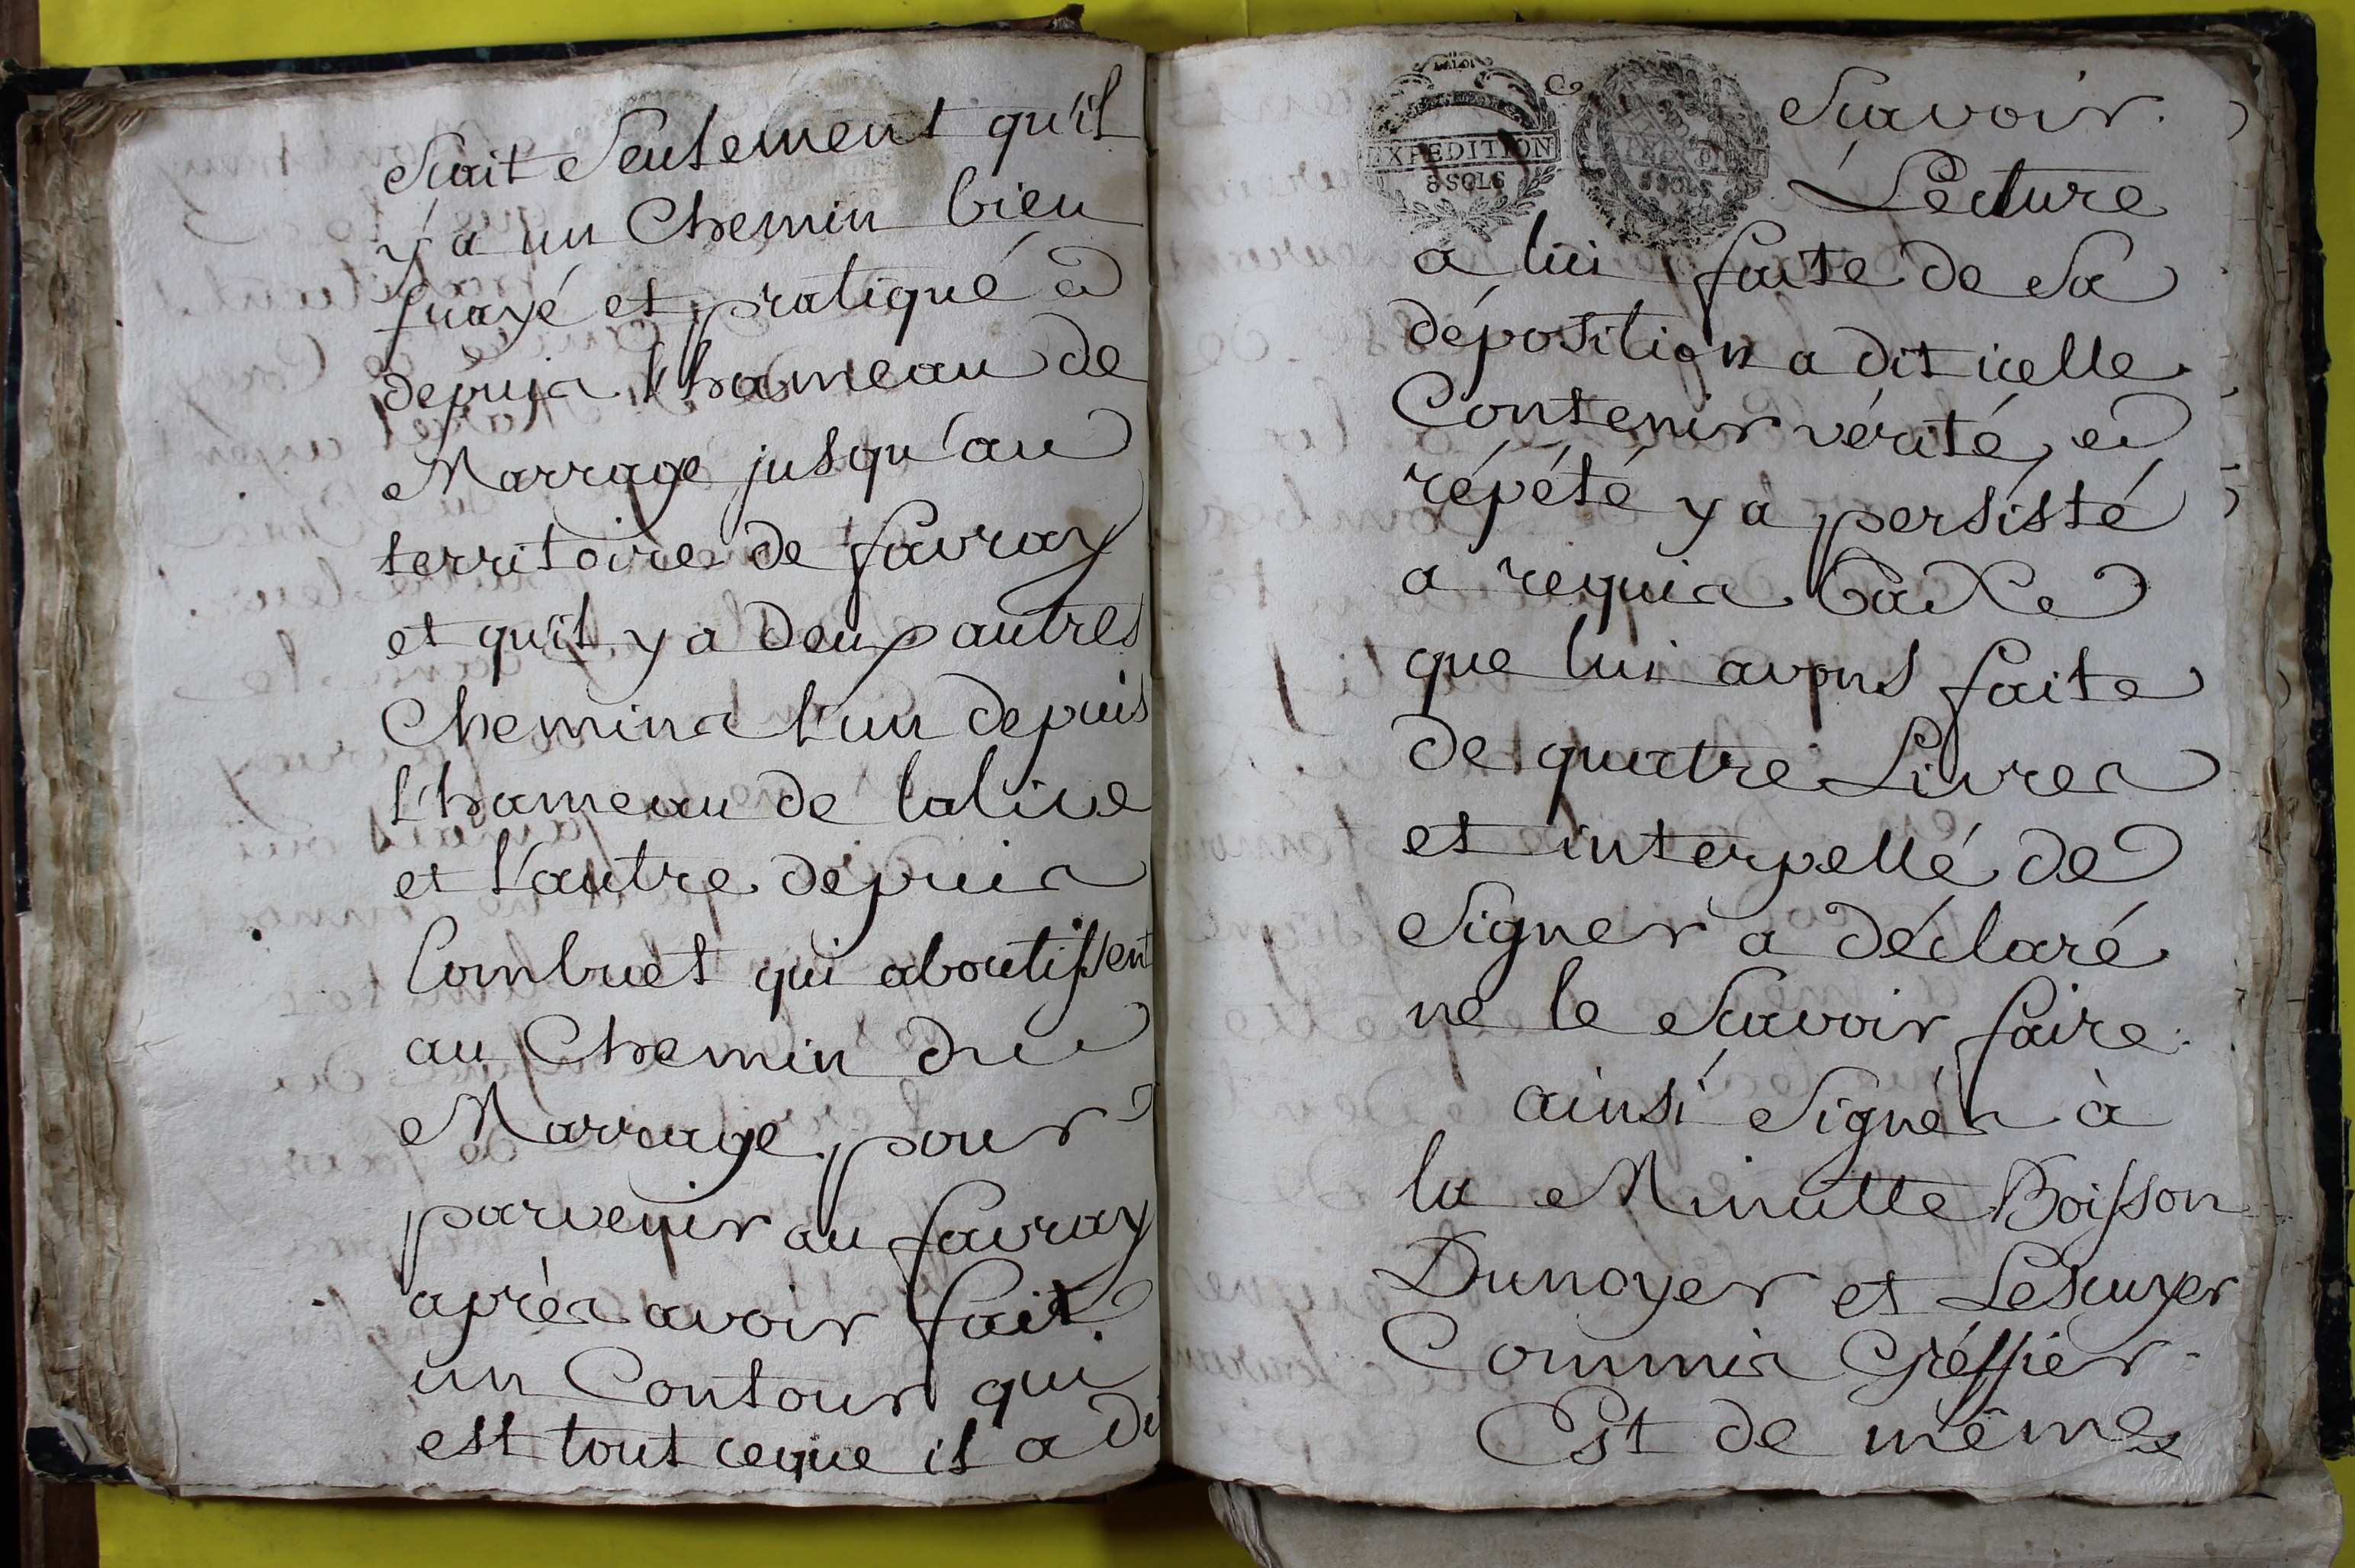 Scait Seulement qu'il
y a un Chemin bien
frayé et pratiqué
depuis l'hameau de
Marrage jusqu'au
territoire de favray
et qu'il y a deux autres
Chemins l'un depuis
l'hameau de
et l'autre depuis
Combret qui aboutissent
au Chemin du
Marrage pour
parvenir au favray
après avoir fait
un Contour qui
est tout ceque il a di
Scavoir.
EXPEDITION
8 SOLS
8 SOLS
Lecture
a lui faite de Sa
déposition a dit icelle
Contenir vérité, et
répété y a persisté
a requis taxe
que lui avons faite
de quatre Livres
et interpellé de
Signer a déclaré
ne le Scavoir faire.
ainsi Signés à
la Minutte Boisson
Dunoyer et Lescuyer
Commis Gréffier.
Est de même